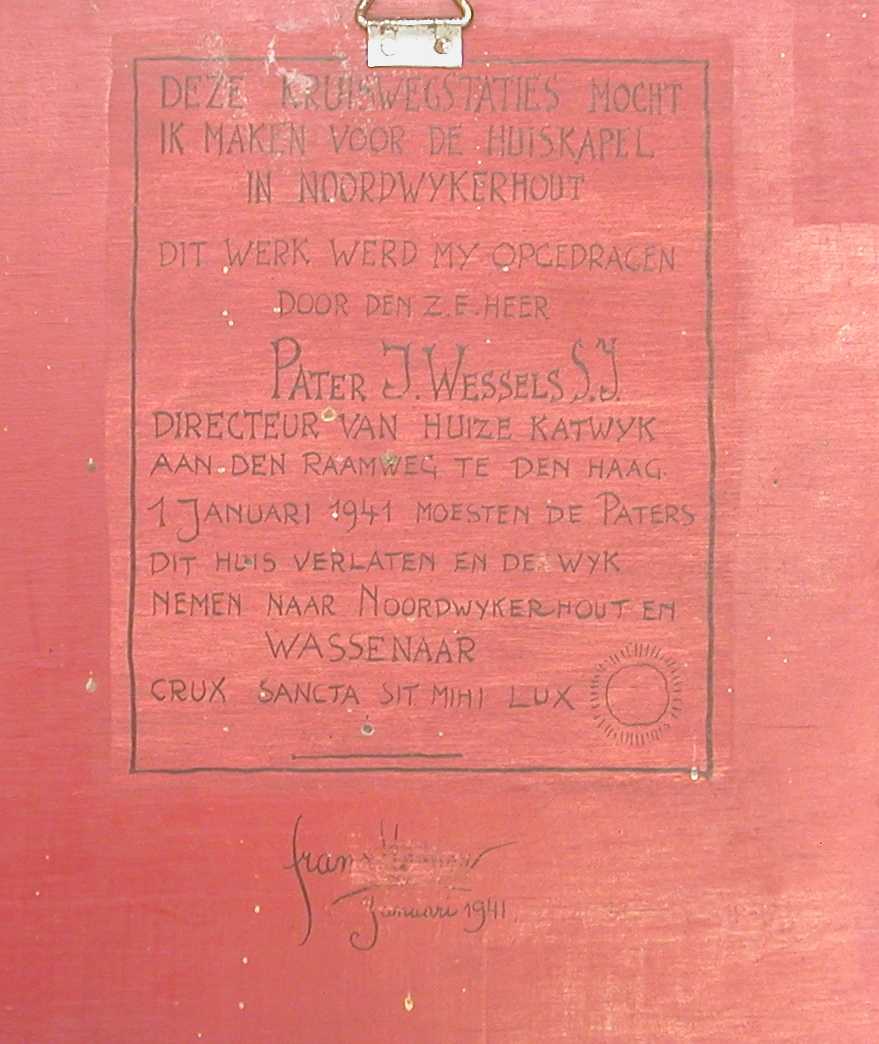 DEZE KRUISWEGSTATIES MOCHT
IK MAKEN VOOR DE HUISKAPEL
IN NOORDWYKERHOUT
DIT WERK WERD MY OPGEDRAGEN
DOOR DEN Z.E. HEER
PATER J. WESSELS S.J.
DIRECTEUR VAN HUIZE KATWYK
AAN DEN RAAMWEG TE DEN HAAG.
1 JANUARI 1941 MOESTEN DE PATERS
DIT HUIS VERLATEN EN DE WYK
NEMEN NAAR NOORDWYKERHOUT EN
WASSENAAR
CRUX SANCTA SIT MIHI LUX
Januari 1941